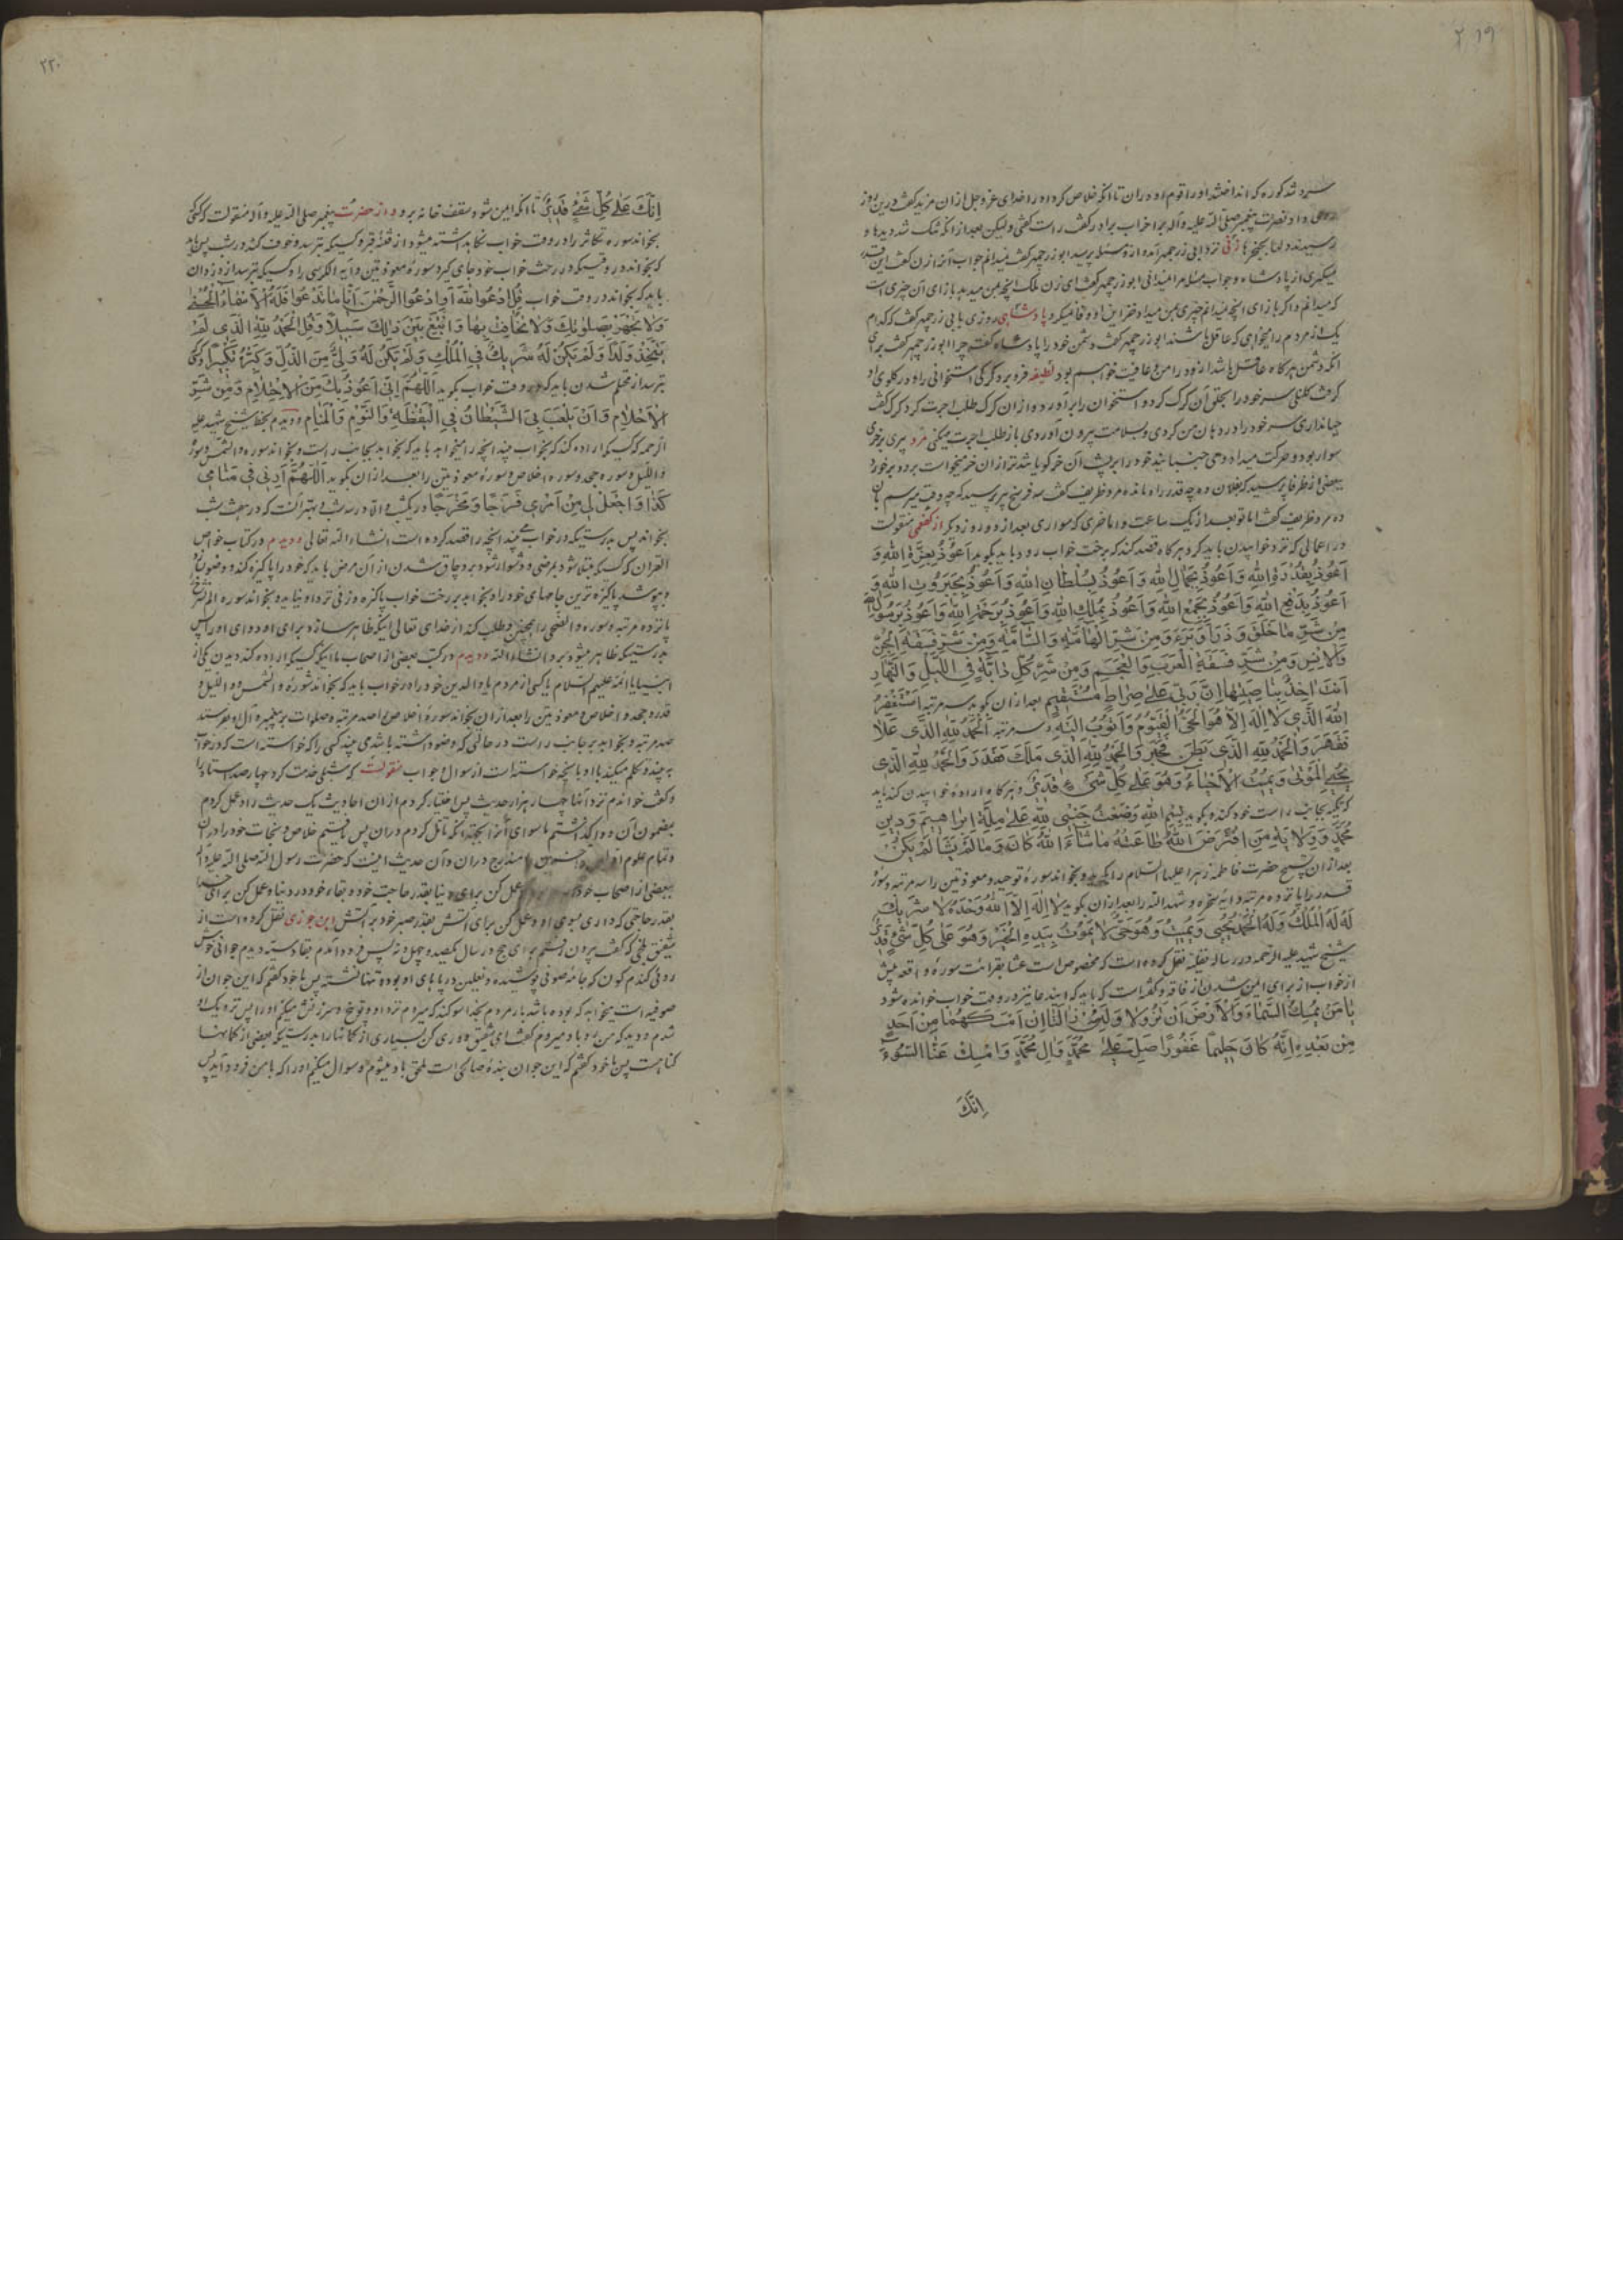 ۲۱۹
سرد شد کوره که انداختند او را قوم او در آن تا آنکه خلاص کرد او را خدای عز و جل از آن مزید گفت درین روز
داد نصرت پیغمبر صلی الله علیه و آله برا خراب برادر گفت راست گفتی ولیکن بعد از آنکه شک شد دیدها و
رسیدند دلها بحنجرها زنی نزد ابی زرجمهر آمد و از و مسئله پرسید ابوزرجمهر گفت نمیدانم جواب آنرا زن گفت این قدر
میگیری از پادشاه و جواب مسئله مرا نمیدانی ابوزرجمهر گفت ای زن ملک آنچه بمن میدهد بازای آن چیزی است
که میدانم و اگر بازای آنچه نمیدانم چیزی بمن میداد فقر این او وفا نمیکرد پادشاهی روزی بابی زرجمهر گفت که کدام
یک از مردم را میخواهی که عاقل باشند ابوزرجمهر گفت دشمن خود را پادشاه گفت چرا ابوزرجمهر گفت برای
آنکه دشمن هرگاه عاقل باشد از و در امن و عافیت خواهم بود لطیفه فرو برد گرگی استخوانی را و در گلوی او
گرفت کلنگی سر خود را بحلق آن گرگ کرد و استخوان را برآورد و از آن گرگ طلب اجرت کرد گرگ گفت
سر خود را در دهان من کردی و بسلامت بیرون آوردی باز طلب اجرت میکنی مرد پیری بر خری
سوار بود و حرکت میداد و می جنبانید خود را بر پشت آن خر گویا تندتر از آن خر میخواست برود برخورد
ببعضی از ظرفا پرسید که بفلان ده چه قدر راه مانده مرد ظریف گفت سه فرسخ پیر پرسید که چه وقت میرسم بآن
ده مرد ظریف گفت اما تو بعد از یک ساعت و اما خری که سواری بعد از دو روز دیگر از کفعمی منقولست
در اعمالی که نزد خوابیدن باید کرد هرگاه قصد کند که برخت خواب رود باید بگوید اَعُوذُ بِعِزَّةِ اللهِ وَ
اَعُوذُ بِقُدْرَةِ اللهِ وَاَعُوذُ بِجَمَالِ اللهِ وَاَعُوذُ بِسُلْطَانِ اللهِ وَاَعُوذُ بِجَبَرُوتِ اللهِ وَ
اَعُوذُ بِدَفْعِ اللهِ وَاَعُوذُ بِجَمْعِ اللهِ وَاَعُوذُ بِمُلْكِ اللهِ وَاَعُوذُ بِرَحْمَةِ اللهِ وَاَعُوذُ بِرَسُولِ اللهِ
مِنْ شَرِّ مَا خَلَقَ وَذَرَأَ وَبَرَءَ وَمِنْ شَرِّ الْهَامَّةِ وَالسَّامَّةِ وَمِنْ شَرِّ فَسَقَةِ الْجِنِّ
وَالْاِنْسِ وَمِنْ شَرِّ فَسَقَةِ الْعَرَبِ وَالْعَجَمِ وَمِنْ شَرِّ كُلِّ دَابَّةٍ فِي اللَّيْلِ وَالنَّهَارِ
اَنْتَ اخِذٌ بِنَاصِيَتِهَا اِنَّ رَبّي عَلَى صِرَاطٍ مُسْتَقِيمٍ بعد از آن بگوید سه مرتبه اَسْتَغْفِرُ
اللهَ الَّذِي لَا اِلهَ اِلَّا هُوَ الْحَيُّ الْقَيُّومُ وَاَتُوبُ اِلَيْهِ و سه مرتبه اَلْحَمْدُ لِلّهِ الَّذِي عَلَا
فَقَهَرَ وَالْحَمْدُ لِلّهِ الَّذِي بَطَنَ فَخَبَرَ وَالْحَمْدُ لِلّهِ الَّذِي مَلَكَ فَقَدَرَ وَالْحَمْدُ لِلّهِ الَّذِي
يُحْيِي الْمَوْتَى وَيُمِيتُ الْاَحْيَاءَ وَهُوَ عَلَى كُلِّ شَيْءٍ قَدِيرٌ و هرگاه اراده خوابیدن کند باید
که تکیه بجانب راست خود کند و بگوید بِسْمِ اللهِ وَضَعْتُ جَنْبِي لِلّهِ عَلَى مِلَّةِ اِبْرَاهِيمَ وَدِينِ
مُحَمَّدٍ وَوِلَايَةِ مَنِ افْتَرَضَ اللهُ طَاعَتَهُ مَا شَاءَ اللهُ كَانَ وَمَا لَمْ يَشَأْ لَمْ يَكُنْ
بعد از آن تسبیح حضرت فاطمه زهرا علیها السلام را بگوید و بخواند سوره توحید و معوذتین را سه مرتبه و سوره
قدر را یازده مرتبه و آیه سخره و شهد الله را بعد از آن بگوید لَا اِلهَ اِلَّا اللهُ وَحْدَهُ لَا شَرِيكَ
لَهُ لَهُ الْمُلْكُ وَلَهُ الْحَمْدُ يُحْيِي وَيُمِيتُ وَهُوَ حَيٌّ لَا يَمُوتُ بِيَدِهِ الْخَيْرُ وَهُوَ عَلَى كُلِّ شَيْءٍ قَدِيرٌ
شیخ شهید علیه الرحمه در رساله نفلیه نقل کرده است که مخصوص است عشا بقرائت سوره واقعه پیش
از خواب از برای ایمن شدن از فاقه و گفته است که باید که این دعا نیز در وقت خواب خوانده شود
يَا مَنْ يُمْسِكُ السَّمَاءَ وَالْاَرْضَ اَنْ تَزُولَا وَلَئِنْ زَالَتَا اِنْ اَمْسَكَهُمَا مِنْ اَحَدٍ
مِنْ بَعْدِهِ اِنَّهُ كَانَ حَلِيمًا غَفُورًا صَلِّ عَلَى مُحَمَّدٍ وَالِ مُحَمَّدٍ وَامْسِكْ عَنَّا السُّوءَ
اِنَّكَ
۲۲۰
اِنَّكَ عَلَى كُلِّ شَيْءٍ قَدِيرٌ تا آنکه ایمن شود سقف خانه برو و از حضرت پیغمبر صلی الله علیه و آله منقولست که کسی
بخواند سوره تکاثر را در وقت خواب نگاه داشته میشود از فتنه قبر و کسیکه بترسد و خوف کند در شب پس باید
که بخواند در وقتیکه در رخت خواب خود جای گیرد سوره معوذتین و آیة الکرسی را و کسیکه بترسد از دزدان
باید که بخواند در وقت خواب قُلِ ادْعُوا اللهَ اَوِ ادْعُوا الرَّحْمنَ اَيًّا مَا تَدْعُوا فَلَهُ الْاَسْمَاءُ الْحُسْنَى
وَلَا تَجْهَرْ بِصَلوتِكَ وَلَا تُخَافِتْ بِهَا وَابْتَغِ بَيْنَ ذلِكَ سَبِيلًا وَقُلِ الْحَمْدُ لِلّهِ الَّذِي لَمْ
يَتَّخِذْ وَلَدًا وَلَمْ يَكُنْ لَهُ شَرِيكٌ فِي الْمُلْكِ وَلَمْ يَكُنْ لَهُ وَلِيٌّ مِنَ الذُّلِّ وَكَبِّرْهُ تَكْبِيرًا و کسی
بترسد از محتلم شدن باید که در وقت خواب بگوید اَللّهُمَّ اِنِّي اَعُوذُ بِكَ مِنَ الْاِحْتِلَامِ وَمِنْ شَرِّ
الْاَحْلَامِ وَاَنْ يَلْعَبَ بِيَ الشَّيْطَانُ فِي الْيَقْظَةِ وَالنَّوْمِ وَالْمَنَامِ و دیدم بخط شیخ شهید علیه
الرحمه که کسیکه اراده کند که بخواب بیند آنچه را میخواهد باید که بخوابد بجانب راست و بخواند سوره والشمس و سوره
واللیل و سوره جحد و سوره اخلاص و سوره معوذتین را بعد از آن بگوید اَللّهُمَّ اَرِنِي فِي مَنَامِي
كَذَا وَاجْعَلْ لِي مِنْ اَمْرِي فَرَجًا وَمَخْرَجًا در یکشب و الا در سه شب و بهتر آنست که در هفت شب
بخواند پس بدرستیکه در خواب می بیند آنچه را قصد کرده است انشاء الله تعالی و دیدم در کتاب خواص
القران که کسیکه مبتلا شود بمرضی و دشوار شود برو چاق شدن از آن مرض باید که خود را پاکیزه کند و وضو بسازد
و بپوشد پاکیزه ترین جامهای خود را و بخوابد بر رخت خواب پاکیزه و زنی نزد او نیاید و بخواند سوره الم نشرح
پانزده مرتبه و سوره والضحی را همچنین و طلب کند از خدای تعالی اینکه ظاهر سازد برای او دوای او را پس
بدرستیکه ظاهر میشود برو انشاء الله و دیدم در کتب بعضی از اصحاب ما اینکه کسیکه اراده کند دیدن یکی از
انبیا یا ائمه علیهم السلام یا کسی از مردم یا والدین خود را در خواب باید که بخواند سوره والشمس و واللیل و
قدر و جحد و اخلاص و معوذتین را بعد از آن بخواند سوره اخلاص را صد مرتبه و صلوات بر پیغمبر و آل او بفرستد
صد مرتبه و بخوابد بر جانب راست در حالتی که وضو داشته باشد می بیند کسی را که خواسته است که در خواب
به بیند و تکلم میکند با او بآنچه خواسته است از سوال و جواب منقولست که شبلی خدمت کرد چهار صد استاد را
و گفت خواندم نزد آنها چهار هزار حدیث پس اختیار کردم از آن احادیث یک حدیث را و عمل کردم
بمضمون آن و واگذاشتم ماسوای آنرا بجهة آنکه تامل کردم در آن پس یافتم خلاص و نجات خود را در آن
و تمام علوم اولین و آخرین را مندرج در آن و آن حدیث اینست که حضرت رسول الله صلی الله علیه و آله
ببعضی از اصحاب خود عمل کن برای دنیا بقدر حاجت خود و بقاء خود در دنیا و عمل کن برای خدا
بقدر حاجتی که داری بسوی او و عمل کن برای آتش بقدر صبر خود بر آتش ابن جوزی نقل کرده است از
شقیق بلخی که گفت بیرون رفتم برای حج در سال یکصد و چهل و نه پس فرود آمدم بقادسیه دیدم جوانی خوش
روئی گندم گون که جامه صوفی پوشیده و نعلین در پاهای او بوده تنها نشسته پس با خود گفتم که این جوان از
صوفیه است میخواهد که بوده باشد بار مردم بخدا سوگند که میروم نزد او و توبیخ و سرزنش میکنم او را پس نزدیک او
شدم و دید که من رو باو میروم گفت ای شقیق دوری کن بسیاری از گمانها را بدرستیکه بعضی از گمانها
گناهست پس با خود گفتم که این جوان بنده صالحی است ملحق باو میشوم و سوال میکنم او را که بامن فرود آید پس